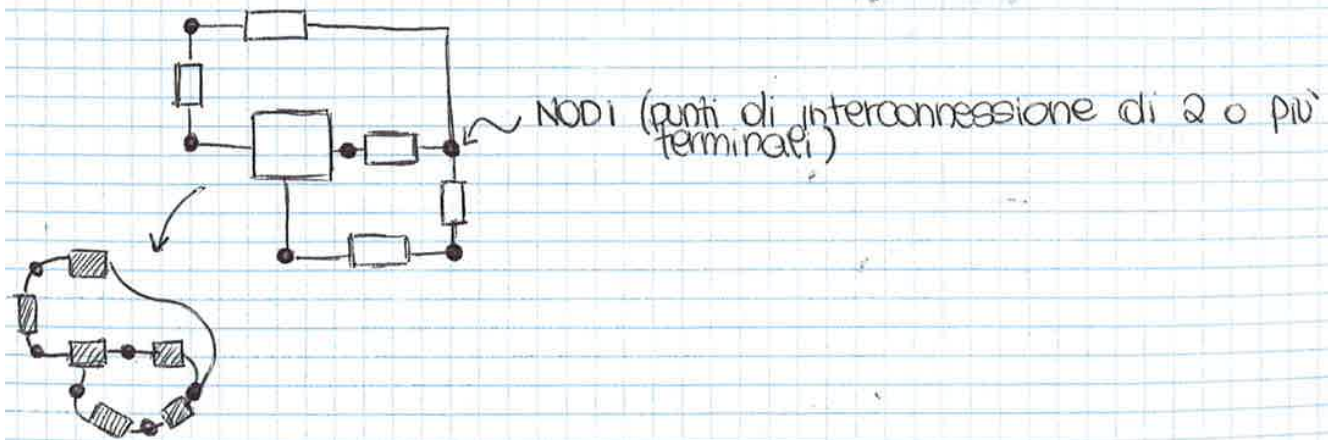 NODI (punti di interconnessione di 2 o più
terminali)